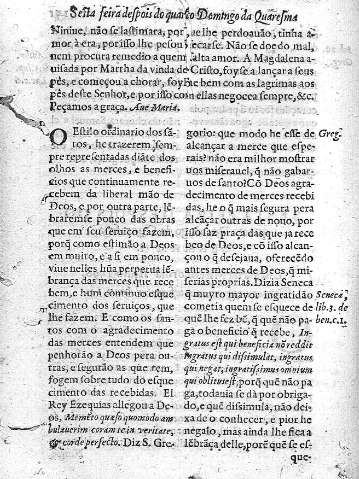 Sesta feira despois do quarto Domingo da Quaresma
Niniue, não se lastimara, por, ae lhe perdoauão, tinha a
mor à era, por isso lhe pesou pecarse. Não se doe do mal,
nem procura remedio a quem falta amor. A Magdalena a-
uisada por Martha da vinda de Cristo, foyse a lançar a seus
pès, e começou a chorar, foy lhe bem com as lagrimas aos
pès deste Senhor, e por isso com ellas negocea sempre, &c.
Peçamos a graça. Aue Maria.
O Estilo ordinario dos sã-
tos, he trazerem sem-
pre representadas diãte dos
olhos as merces, e benefi-
cios que continuamente re-
cebem da liberal mão de
Deos, e por outra parte, lẽ-
braremse pouco das obras
que em seu seruiço fazem,
porq̃ como estimão a Deos
em muito, e a si em pouco,
viue nelles hũa perpetua lẽ-
brança das merces que rece
bem, e hum continuo esque
cimento dos seruiços, que
lhe fazem. E como os san-
tos com o agradecimento
das merces entendem que
penhorão a Deos pera ou-
tras, e segurão as que tem,
fogem sobre tudo do esque
cimento das recebidas. El
Rey Ezequias allegou a De-
os, Memẽto quæso quomodo am
bulauerim coram te in veritate,
& corde perfecto. Diz S. Gre-
gorio: que modo he esse de
alcançar a merce que espe-
rais? não era milhor mostrar
uos miserauel, q̃ não gabar-
uos de santo? Cõ Deos agra-
decimento de merces recebi
das, he o q̃ mais segura pera
alcãçar outras de nouo, por
isso faz praça das que ja rece
beo de Deos, e cõ isso alcan-
çou o q̃ desejaua, oferecẽdo
antes merces de Deos, q̃ mi-
serias proprias. Dizia Seneca
q̃ muyto mayor ingratidão
cometia quem se esquece do
que lhe fez bẽ, q̃ quẽ não pa
ga o beneficio q̃ recebe, In-
gratus est qui beneficiũ nõ reddit
ingratus qui disimulat, ingratus
qui negat, ingratissimus omnium
qui oblitus est, porq̃ quẽ não pa
ga, todauia se dà por obriga-
do, e quẽ disimula, não dei-
xa de o conhecer, e pior he
negalo, mas ainda lhe fica a
lẽbrãça delle, porq̃ quẽ se es-
que-
Greg.
Seneca
lib. 3. de
ben. c. 1.